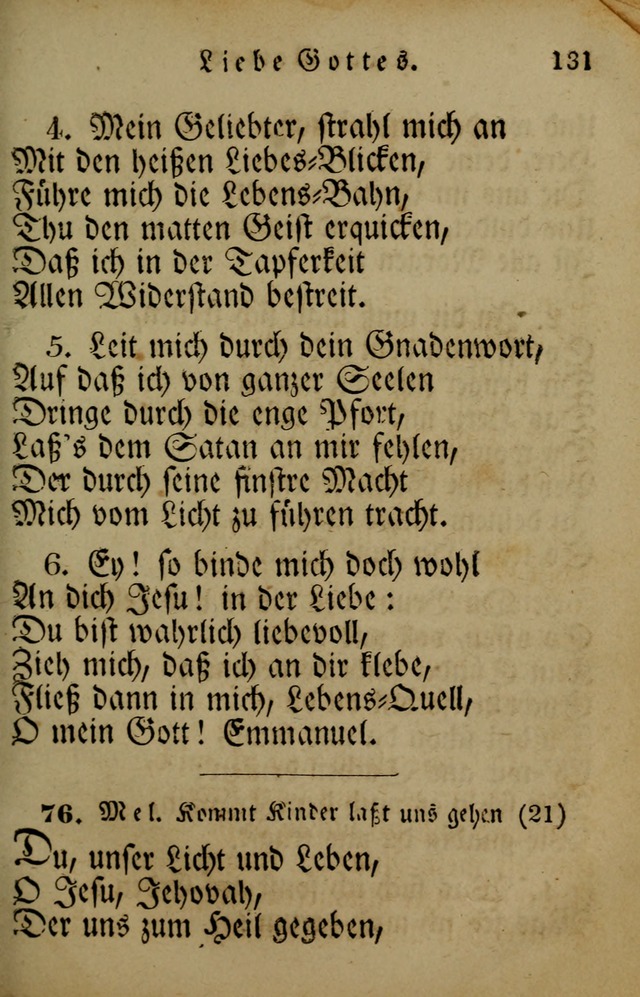 Liebe Gottes. 131
4. Mein Geliebter, strahl mich an
Mit den heißen Liebes-Blicken,
Führe mich die Lebens-Bahn,
Thu den matten Geist erquicken,
Daß ich in der Tapferkeit
Allen Widerstand bestreit.
5. Leit mich durch dein Gnadenwort,
Auf daß ich von ganzer Seelen
Dringe durch die enge Pfort,
Laß's dem Satan an mir fehlen,
Der durch seine finstre Macht
Mich vom Licht zu führen tracht.
6. Ey! so binde mich doch wohl
An dich Jesu! in der Liebe:
Du bist wahrlich liebevoll,
Zieh mich, daß ich an dir klebe,
Fließ dann in mich, Lebens-Quell,
O mein Gott! Emmanuel.
76. Mel. Kommt Kinder laßt uns gehen (21)
Du, unser Licht und Leben,
O Jesu, Jehovah,
Der uns zum Heil gegeben,